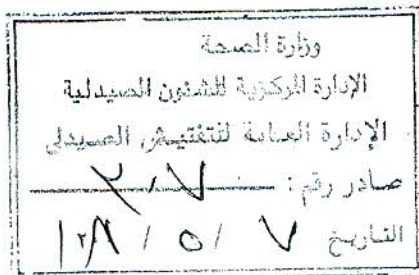 وزارة الصحة
الإدارة المركزية للشئون الصيدلية
الإدارة العامة للتفتيش الصيدلى
صادر رقم : ٢٠٧
التاريخ ٧ / ٥ /